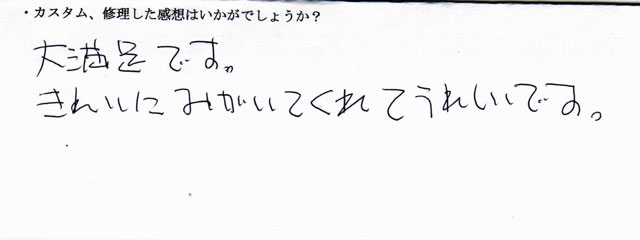 ・カスタム、修理した感想はいかがでしょうか？
大満足です。
きれいにみがいてくれてうれしいです。